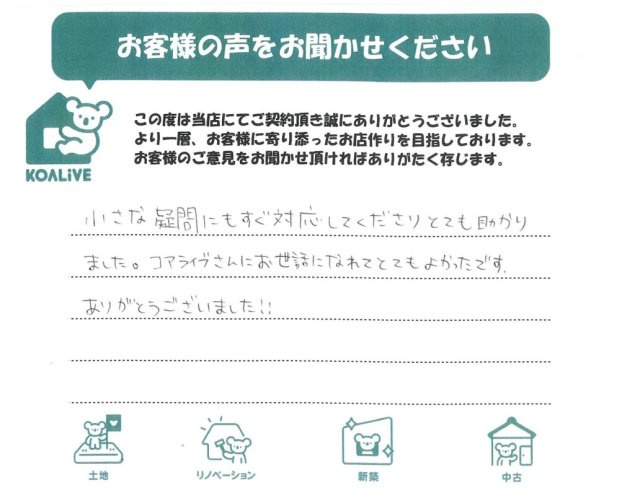 お客様の声をお聞かせください
この度は当店にてご契約頂き誠にありがとうございました。
より一層、お客様に寄り添ったお店作りを目指しております。
お客様のご意見をお聞かせ頂ければありがたく存じます。
KOALIVE
小さな疑問にもすぐ対応してくださりとても助かり
ました。コアライブさんにお世話になれてとてもよかったです。
ありがとうございました!!
土地
リノベーション
新築
中古